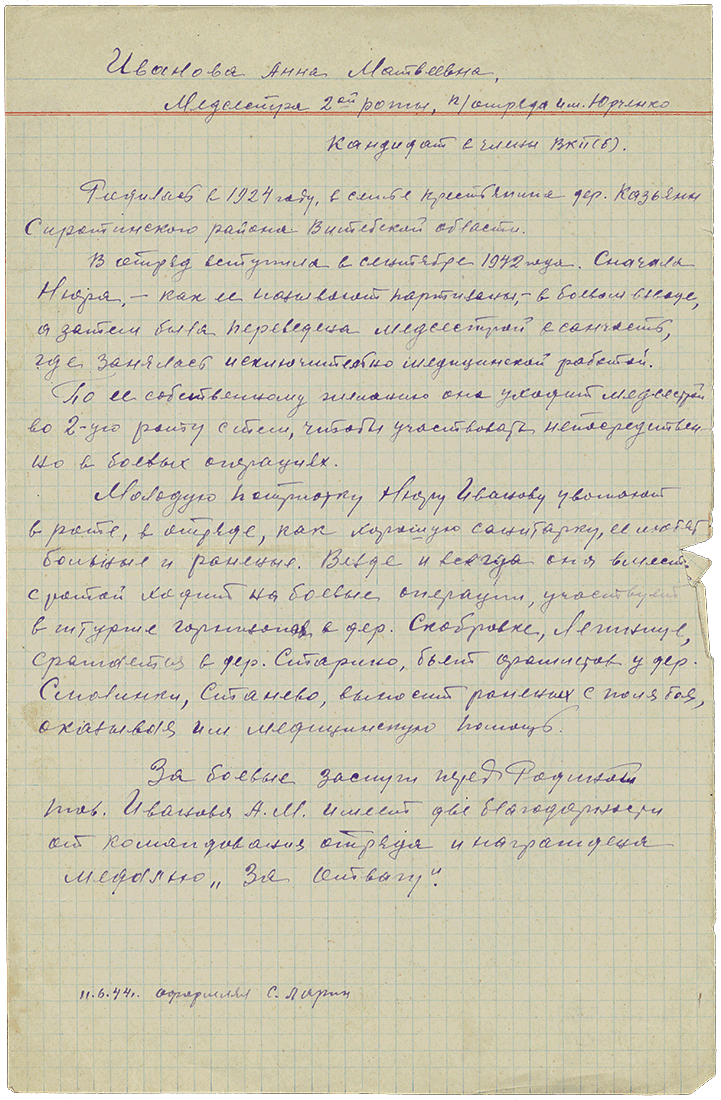 Иванова Анна Матвеевна,
Медсестра 2ой роты, п/отряда им. Юрченко
Кандидат в члены ВКП(б).
Родилась в 1924 году, в семье крестьянина дер. Казьяны
Сиротинского района Витебской области.
В отряд вступила в сентябре 1942 года. Сначала
Нюра, – как ее называют партизаны, – в боевом взводе,
а затем была переведена медсестрой в санчасть,
где занялась исключительно медицинской работой.
По ее собственному желанию она уходит медсестрой
во 2-ую роту с тем, чтобы участвовать непосредствен-
но в боевых операциях.
Молодую патриотку Нюру Иванову уважают
в роте, в отряде, как хорошую санитарку, ее любят
больные и раненые. Везде и всегда она вместе
с ротой ходит на боевые операции, участвует
в штурме гарнизонов в дер. Скобровке,
сражается в дер. Старино, бьет фашистов у дер.
Станево, выносит раненых с поля боя,
оказывая им медицинскую помощь.
За боевые заслуги перед Родиной
тов. Иванова А.М. имеет две благодарности
от командования отряда и награждена
медалью „За Отвагу".
11.6.44г. оформлял С. Ларин